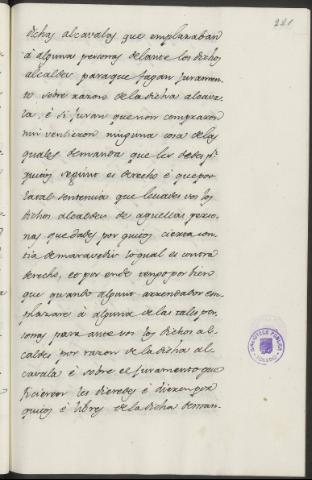 221
dichas alcavalas que emplazaban
á alguna personas delante los dichos
alcaldes para que fagan Juramen-
to sobre razon de la dicha alcava-
la, é si juran que non compraron
nin vendieron ninguna cosa de las
quales demanda que les dedes pr.
quitos, segund es derecho é que por
tal sentencia que levades vos los
dichos alcaldes de aquellas perso-
nas que dades por quitos cierta con-
tia de maravedis lo qual es contra
derecho, et por ende tengo por bien
que quando algund arrendador em-
plazare á alguna de las tales per-
sonas para ante vos los dichos al-
caldes por razon de la dicha al-
cavala é sobre el Juramento que
ficieren les dieredes é
quitos é libres de la dicha deman-